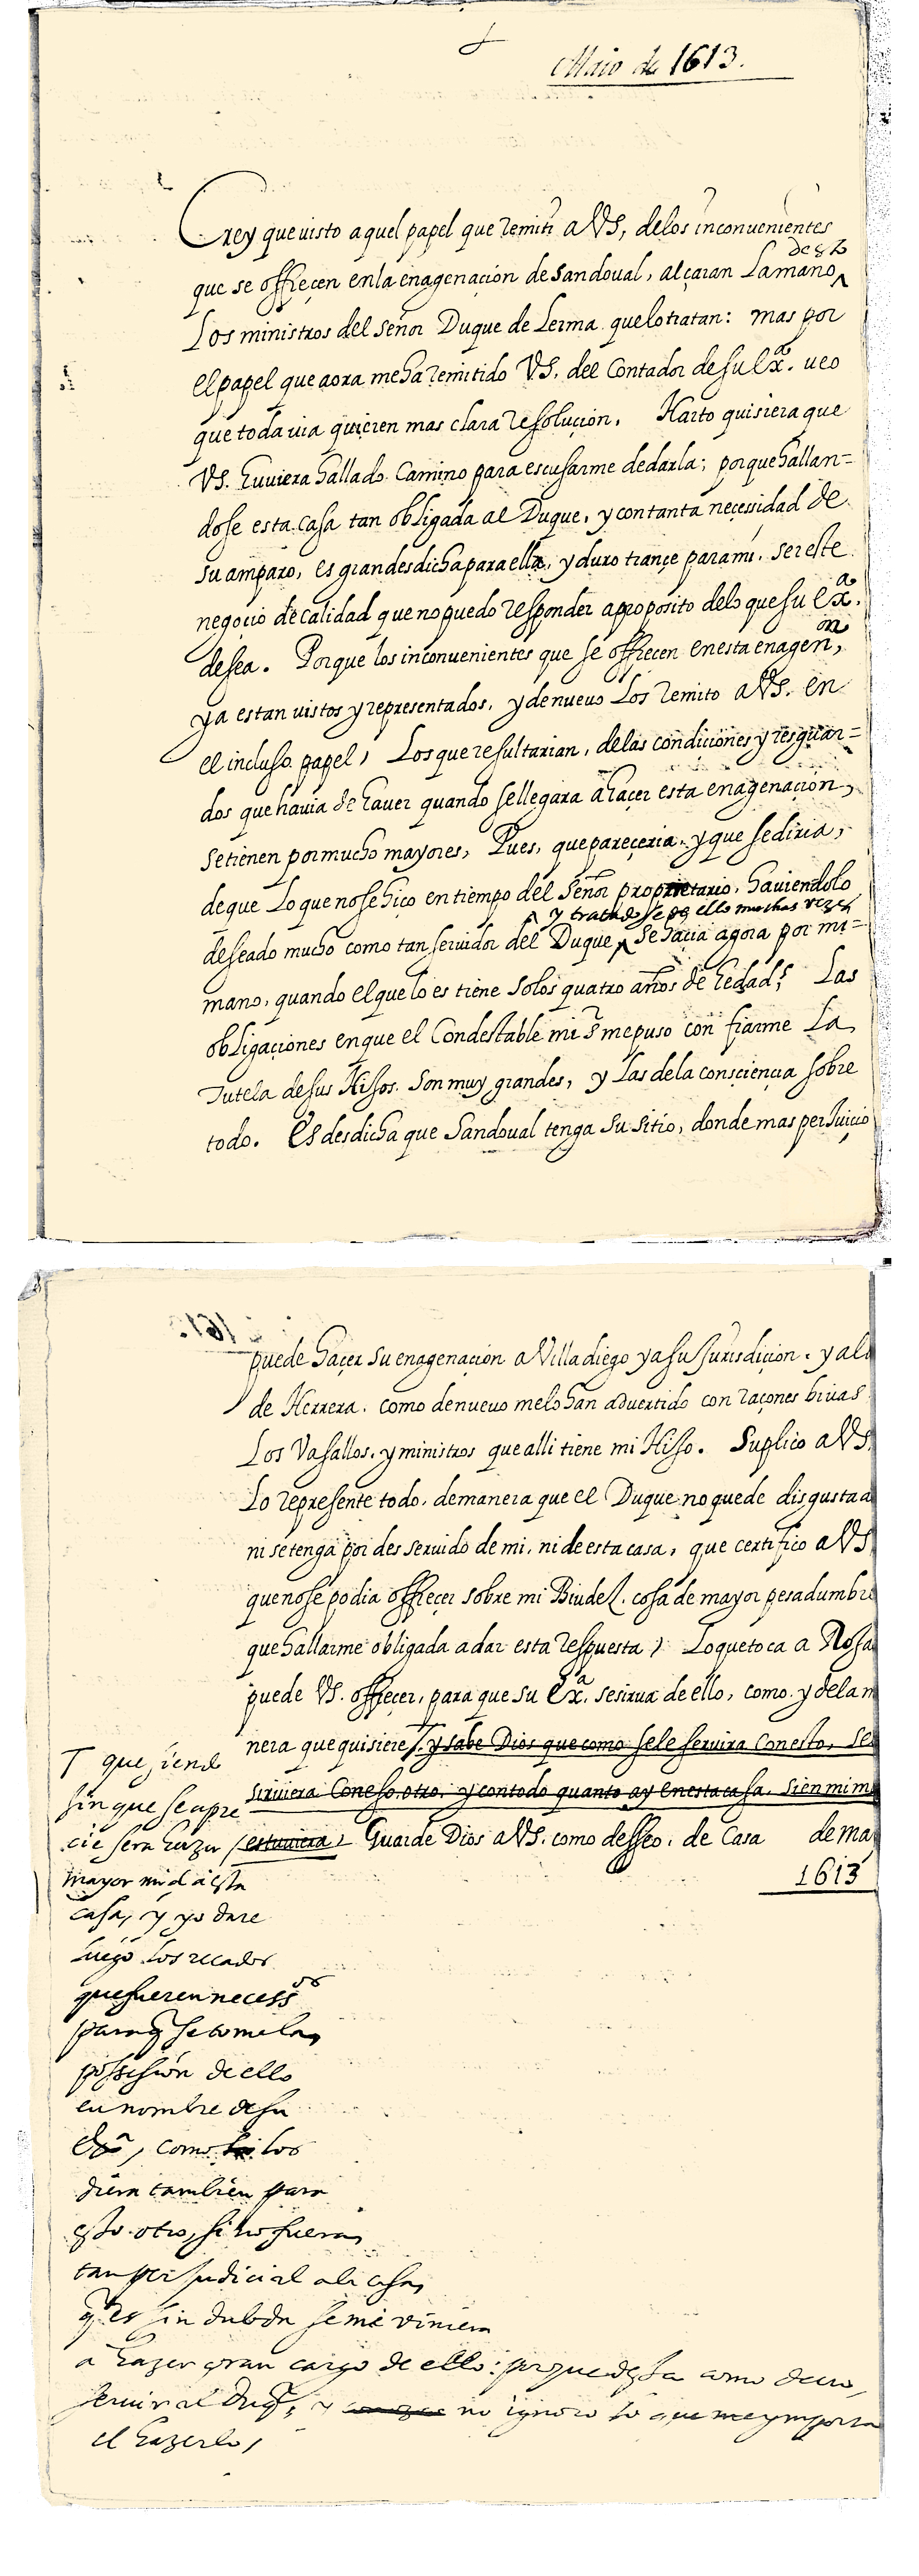 Maio de 1613.
Crey que visto aquel papel que remiti a VS, delos inconuenientes
que se offreçen enla enagenaçion de Sandoual, alçaran La mano
desto
Los ministros del señor Duque de Lerma quelotratan: mas por
el papel que aora meha remitido VS. del Contador de su Exª. veo
que toda uia quieren mas clara resoluçion. Harto quisiera que
VS. huuiera hallado Camino para escusarme dedarla; porque hallan=
dose esta Casa tan obligada al Duque, y contanta neçessidad de
su amparo, es grandesdicha para ella, y duro trançe para mi, ser este
negoçio de calidad que no puedo responder aproposito delo que su Exª.
desea. Porque los inconuenientes que se offreçen enesta enagenon,
ya estan vistos y representados, y denuevo Los remito a VS. en
el incluso papel, Los que resultarian, delas condiçiones y resguar=
dos que hauia de hauer quando sellegara a haçer esta enagenaçion,
setienen pormucho mayores, Pues, quepareçeria, y que sediria,
deque Lo quenose hiço en tiempo del Señor proprietario, hauiendolo
y tratadose de ello muchas vezes
deseado mucho como tan seruidor del Duque se haçia agora por mi=
mano, quando el que lo es tiene solos quatro años de hedad? Las
obligaçiones enque el Condestable mi s.r mepuso con fiarme La
Tutela desus Hijos. Son muy grandes, y Las dela consçiençia sobre
todo. Es desdicha que Sandoual tenga su sitio, donde mas perJuiçio
puede haçer su enagenaçion a Villadiego y a su Jurisdiçion, y al
de Herrera. como denueuo melo han aduertido con raçones biuas
Los Vasallos, y ministros que alli tiene mi Hijo. Suplico a VS.
Lo represente todo, demanera que el Duque no quede disgustad
ni se tenga por desseruido de mi, ni de esta casa, que certifico a VS
quenose podia offreçer sobre mi Biudez cosa de mayor pesadumbre
que hallarme obligada a dar esta respuesta, Loquetoca a Rosa
puede VS. offreçer, para que su Exª. sesirua de ello, como y dela m
nera que quisiere, y sabe Dios que como sele seruira Conesto, se
siruiera Coneso otro, y contodo quanto ay enesta casa, sien mi m
estuuiera, Guarde Dios a VS. como desseo, de Casa de ma
1613
T que siendo
sin que se apre
cie sera hazer
mayor md a esta
casa, y yo dare
luego los recados
que fueren necessos
para q se tome la
possesion de ello
en nombre de su
Exª, como los
diera tambien para
esto otro, si no fuera
tan perjudicial a la casa
q es sin dubda se me viniera
a hazer gran cargo de ello: porque desea como devo
seruir al Duq, y no ignoro lo que me ymporta
el hazerlo,